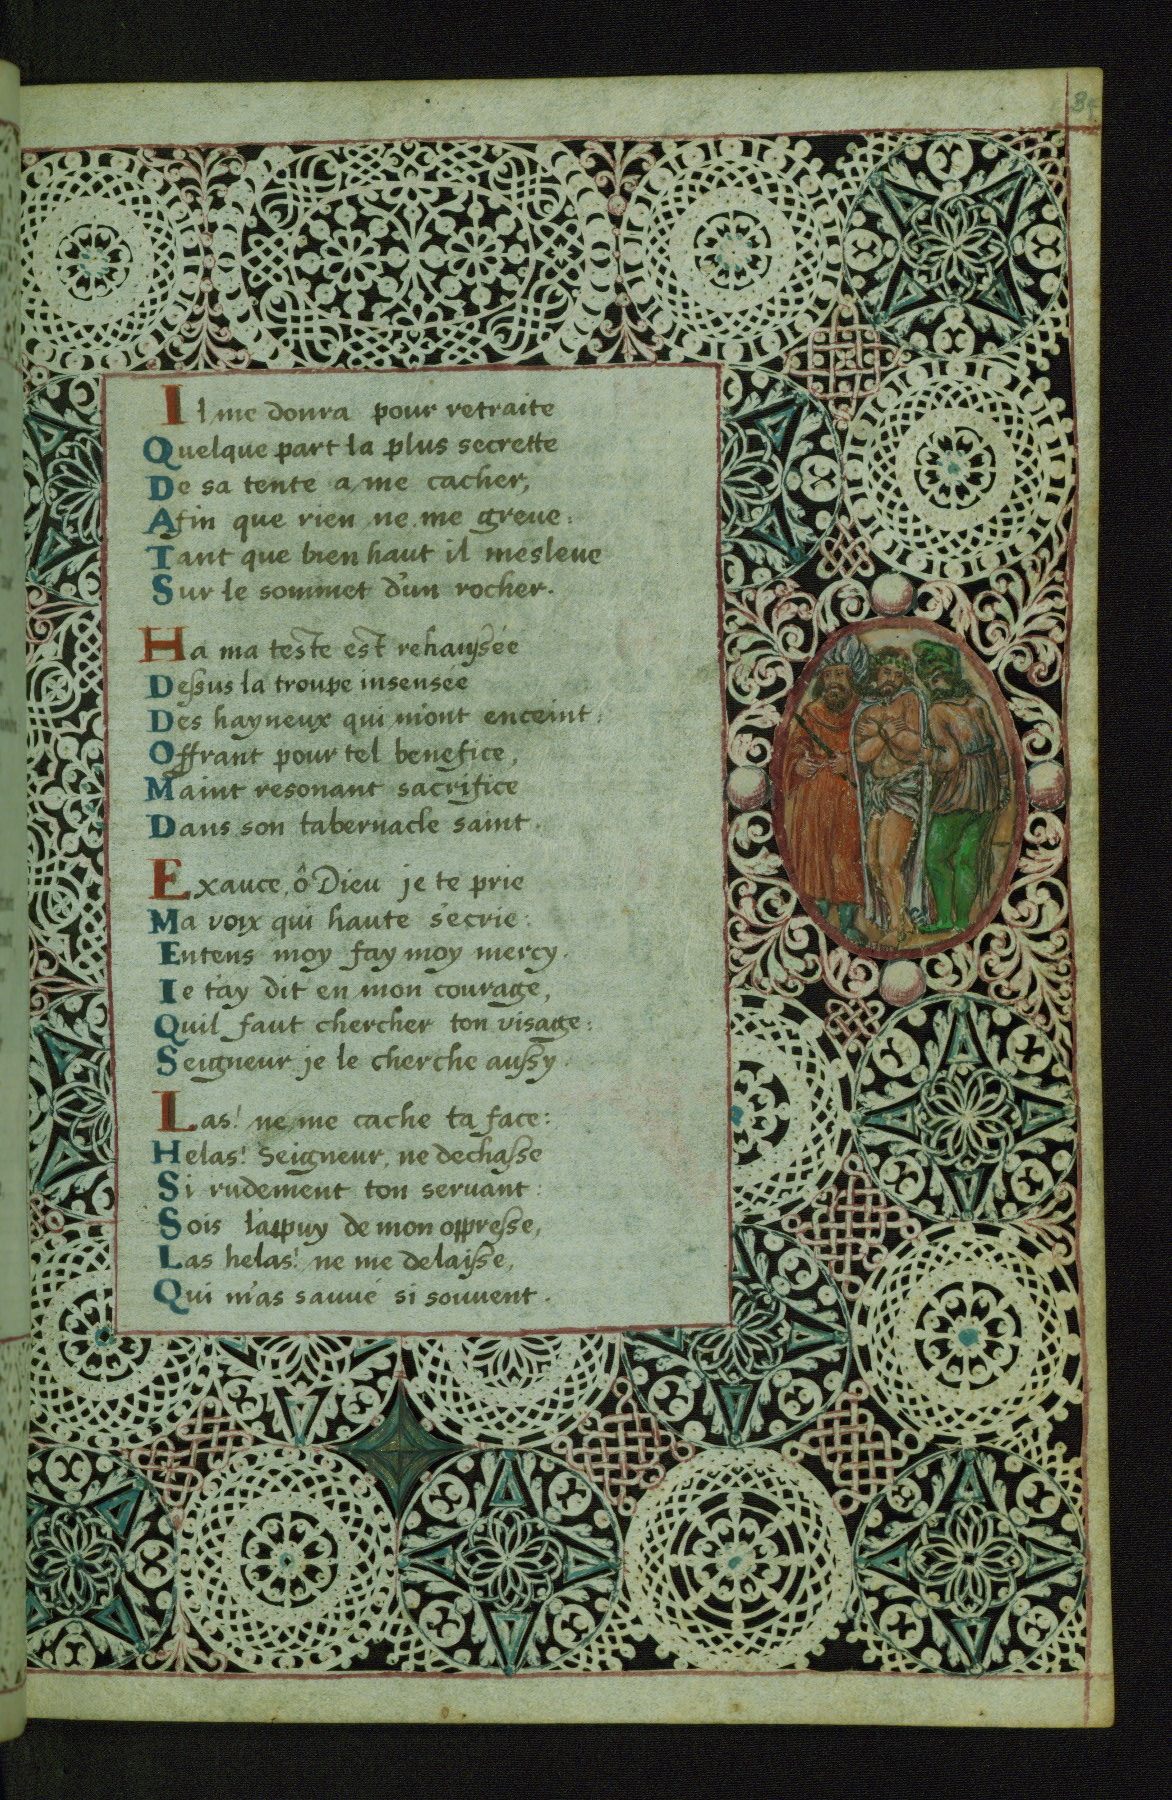 34
Il me donra pour retraite
Quelque part la plus secrette
De sa tente a me cacher,
Afin que rien ne me greue:
Tant que bien haut il mesleue
Sur le sommet d'un rocher.
Ha ma teste est rehaussée
Dessus la troupe insensée
Des hayneux qui m'ont enceint:
Offrant pour tel benefice,
Maint resonant sacrifice
Dans son tabernacle saint.
Exauce, ô Dieu je te prie
Ma voix qui haute s'ecrie:
Entens moy fay moy mercy.
Ie t'ay dit en mon courage,
Quil faut chercher ton visage:
Seigneur je le cherche aussy.
Las! ne me cache ta face:
Helas! Seigneur, ne dechasse
Si rudement ton seruant:
Sois l'appuy de mon oppresse,
Las helas! ne me delaisse,
Qui m'as sauué si souuent.